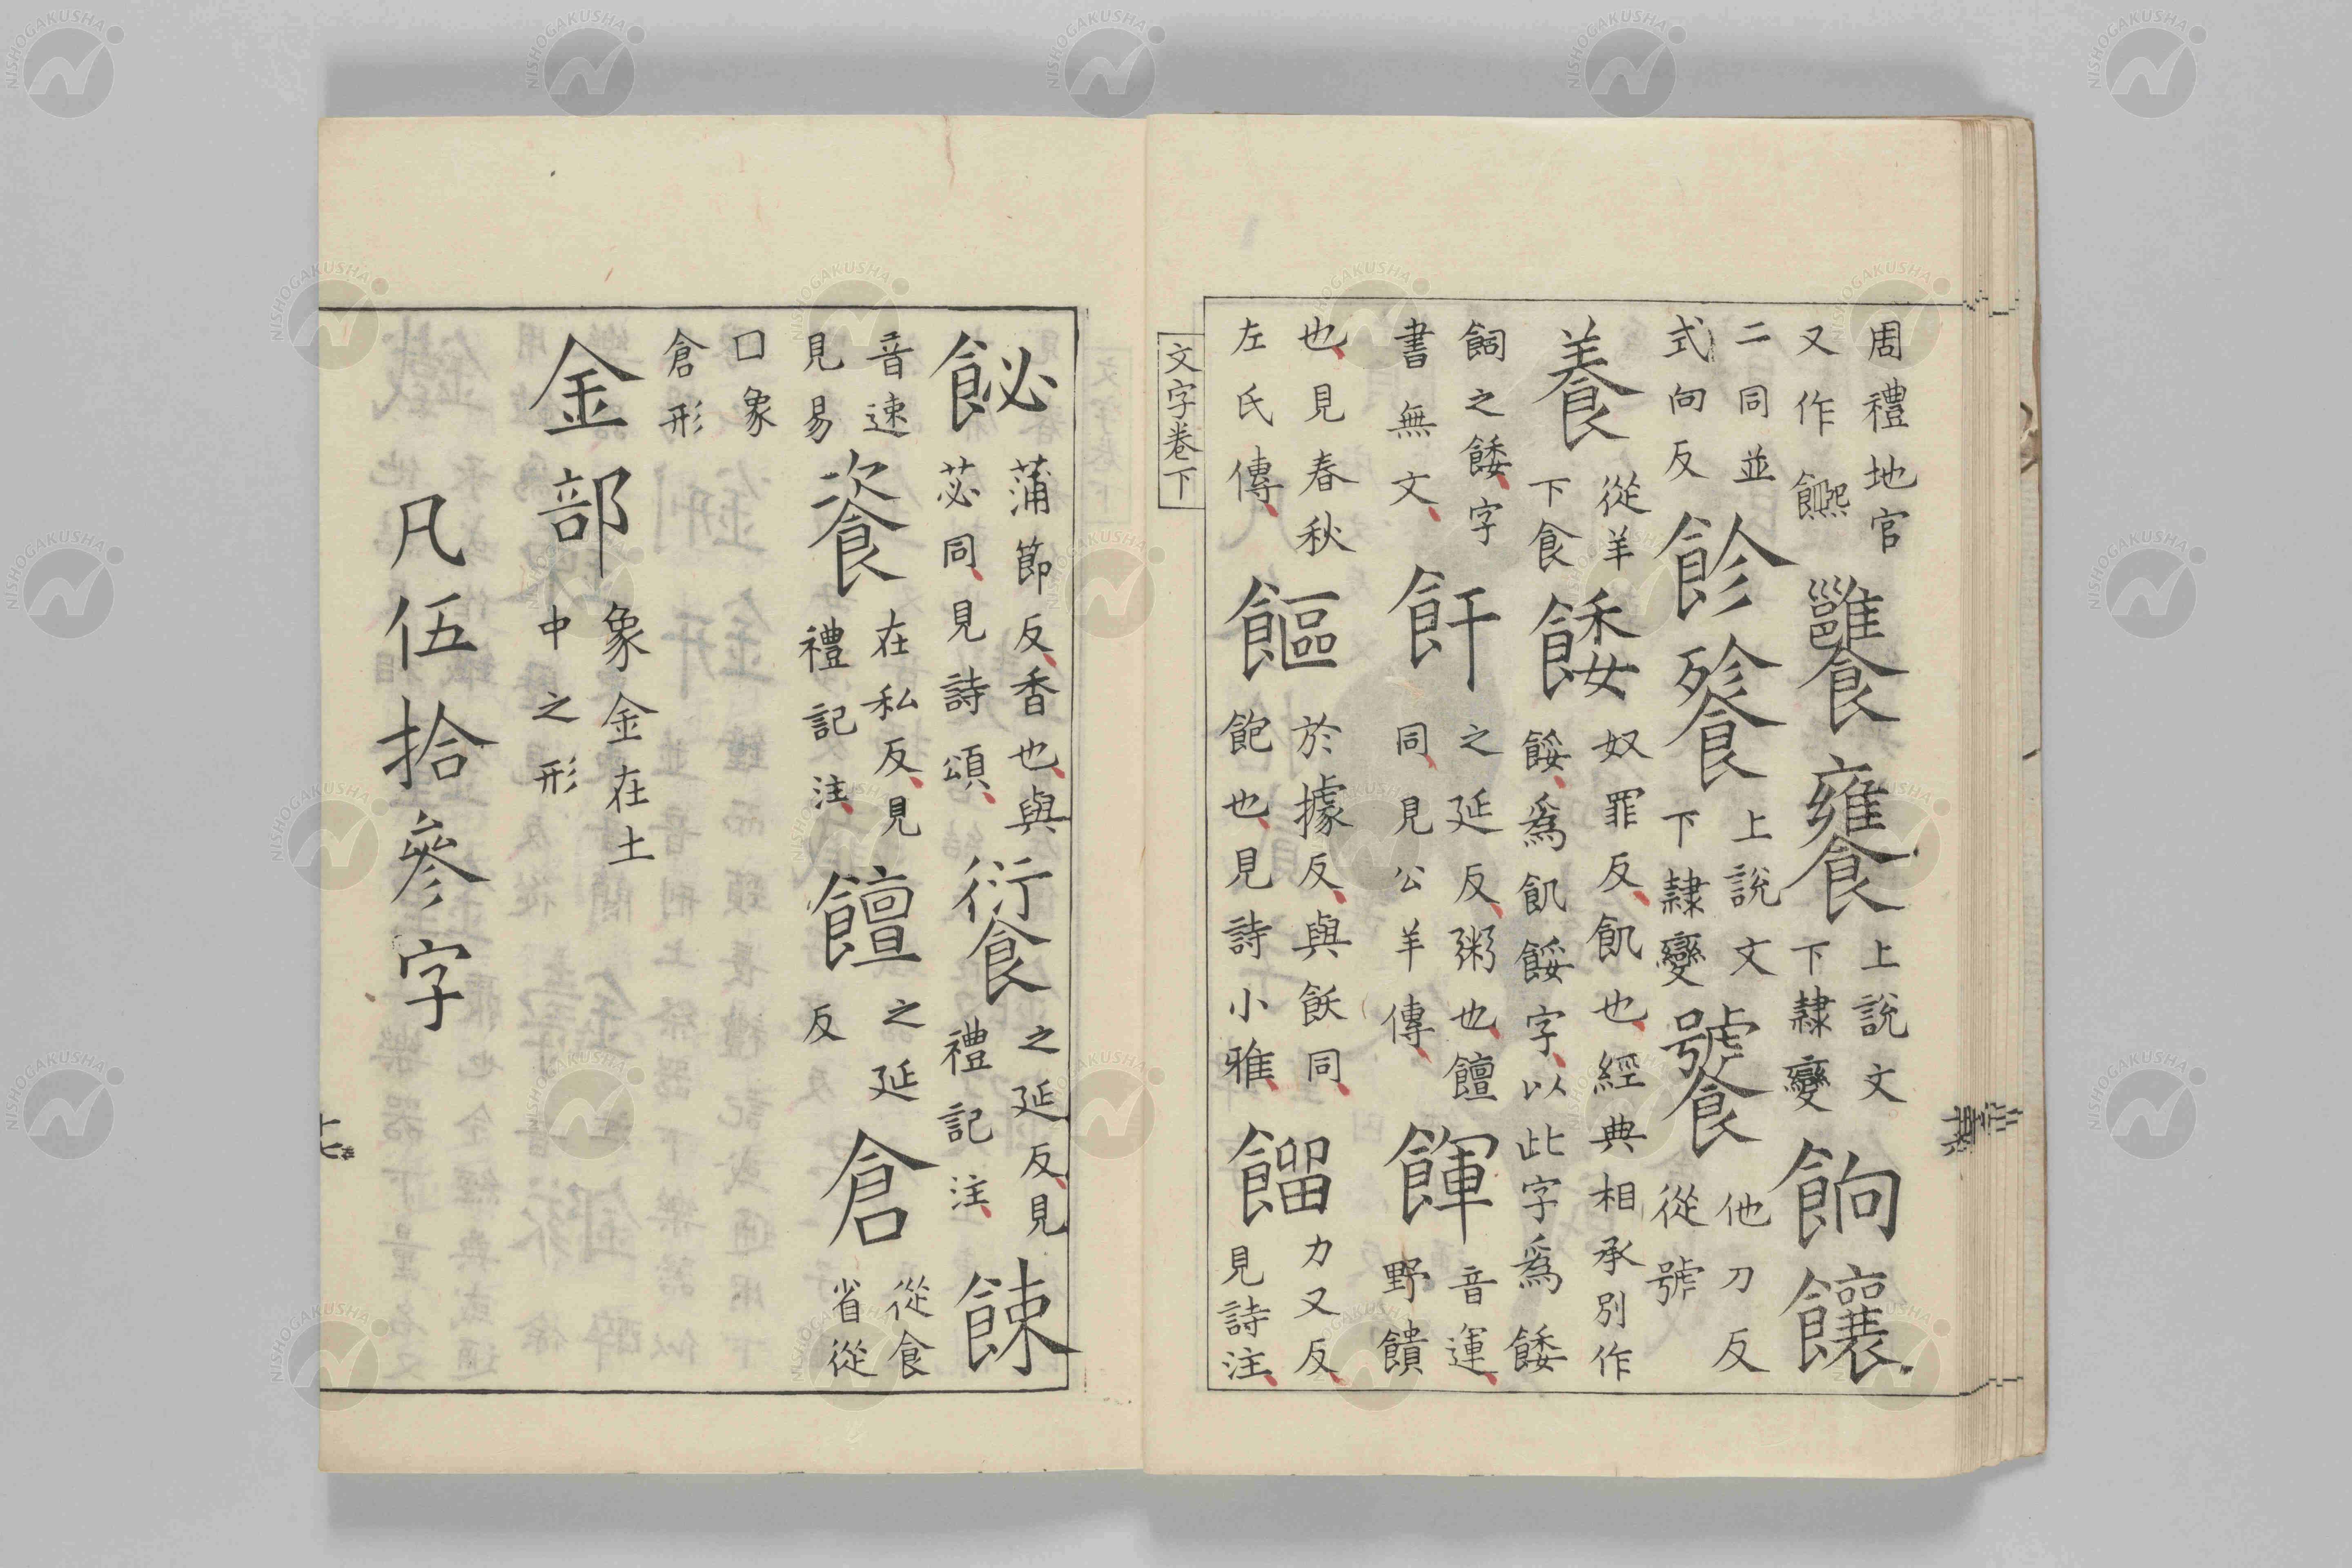 周禮地官
又作䭘𩞁饔上說文
下隸變餉饟
二同並
式向反飻餮上說文
下隸變饕他刀反
從號
養從羊
下食餧奴罪反飢也經典相承別作
餒爲飢餒字以此字爲餧
飼之餧字
書無文飦之延反粥也饘
同見公羊傳餫音運
野饋
也見春秋
左氏傳饇於據反與飫同
飽也見詩小雅餾力又反
見詩注
文字卷下
飶蒲節反香也與
苾同見詩頌䭥之延反見
禮記注餗
音速
見易餈在私反見
禮記注饘之延
反倉從食
省從
口象
倉形
金部象金在土
中之形
凡伍拾參字
NISHOGAKUSHA